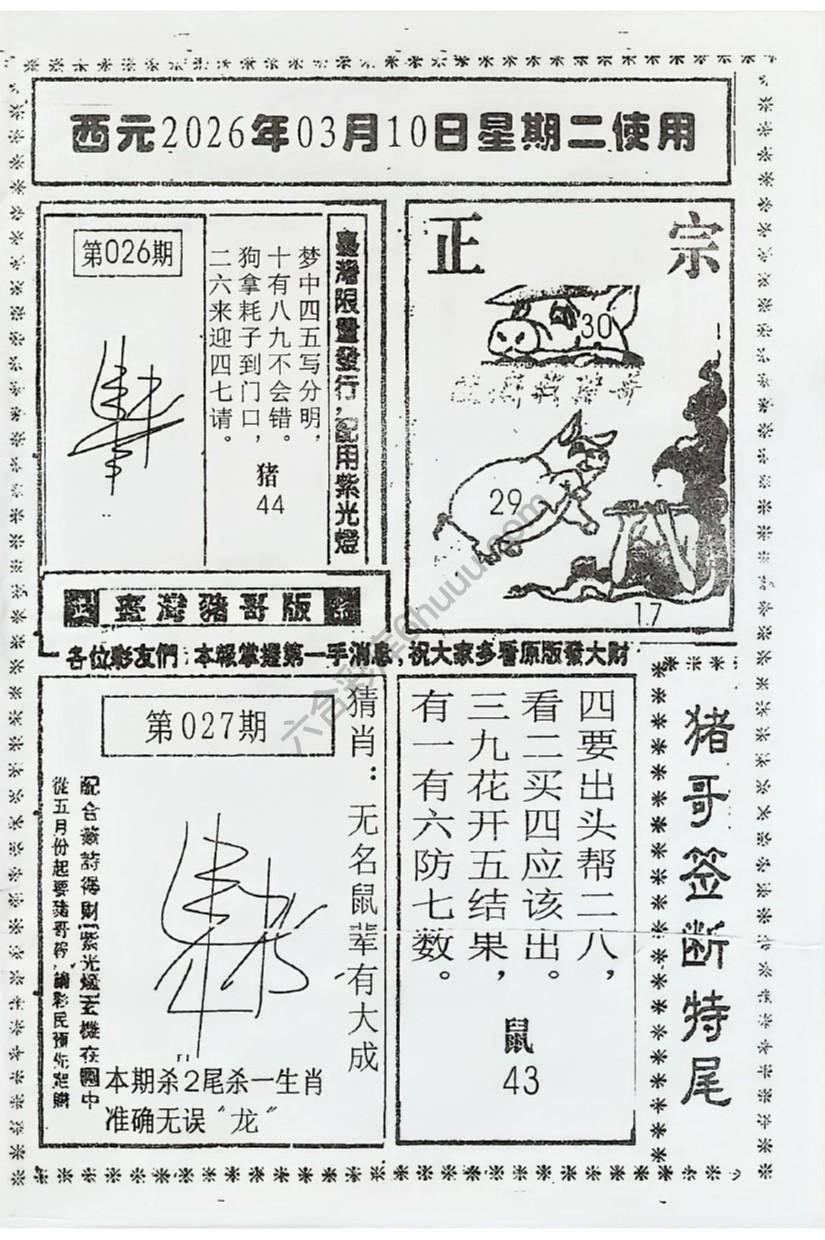 西元2026年03月10日星期二使用
第026期
梦中四五写分明,
十有八九不会错。
狗拿耗子到门口,
二六来迎四七请。
猪
44
臺灣限量發行,配用紫光燈
正宗
30
29
17
臺灣豬哥版
各位彩友們:本報掌握第一手消息,祝大家多看原版發大財
第027期
猜肖:无名鼠辈有大成
配合簽詩得財紫光燈玄機在圖中
從五月份起要豬哥
本期杀2尾杀一生肖
准确无误“龙”
四要出头帮二八,
看二买四应该出。
三九花开五结果,
有一有六防七数。
鼠
43
猪哥签断特尾
六合彩库@huuu.com